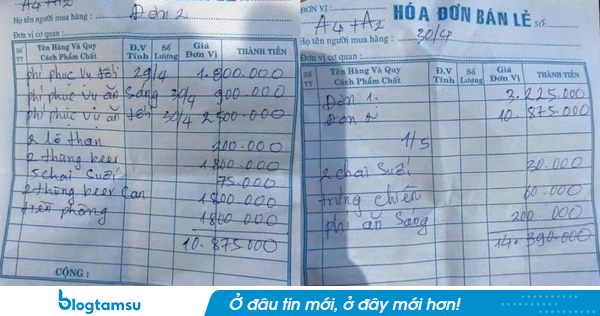 A4+A2
Họ tên người mua hàng : Đơn 2
Đơn vị cơ quan :
Số TT Tên Hàng Và Quy Cách Phẩm Chất Đ.V Tính Số Lượng Giá Đơn Vị THÀNH TIỀN
phí phục vụ tối 29/4 1.800.000
phí phục vụ ăn sáng 30/4 900.000
phí phục vụ ăn tối 30/4 2500.000
2 lò than 200.000
2 thùng beer 1800.000
5 chai suối 75.000
2 thùng beer can 1800.000
tiền phòng 1800.000
10.875.000
CỘNG :
ĐƠN VỊ :
HÓA ĐƠN BÁN LẺ Số:
A4+A2
Họ tên người mua hàng : 30/4
Đơn vị cơ quan :
Số TT Tên Hàng Và Quy Cách Phẩm Chất Đ.V Tính Số Lượng Giá Đơn Vị THÀNH TIỀN
Đơn 1. 3.225.000
Đơn 2 10.875.000
1/5
2 chai suối 30.000
trứng chiên 60.000
phí ăn sáng 200.000
14.390.000
blogtamsu
Ở đâu tin mới, ở đây mới hơn!